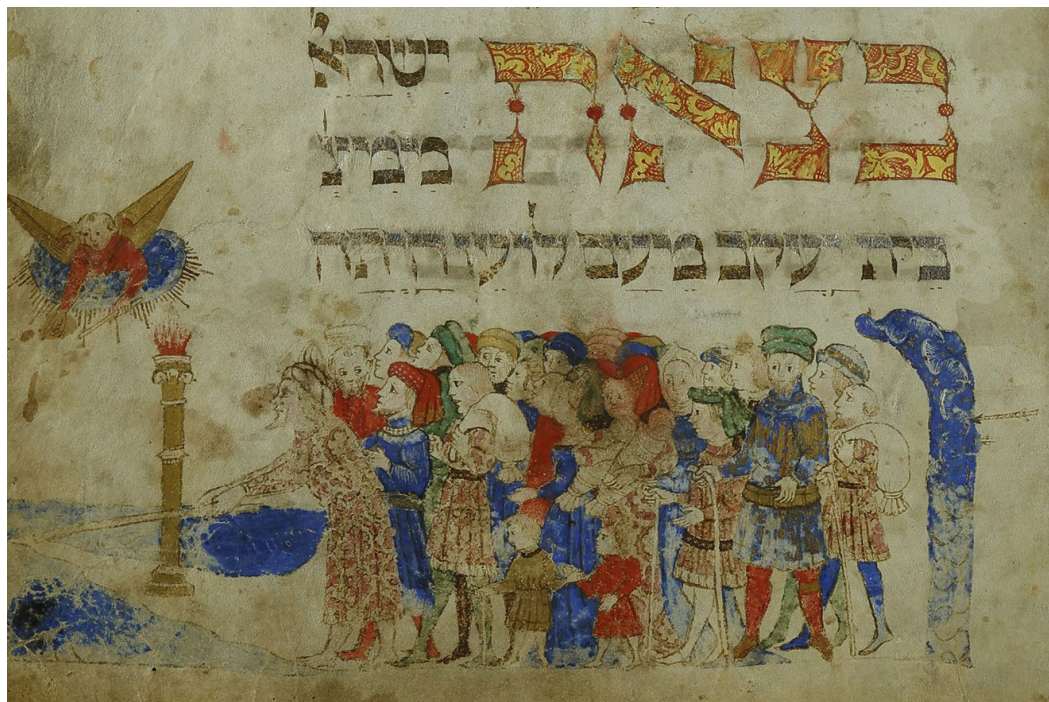 בצאת ישראל
ממצ
בית יעקב מעם לועז היתה